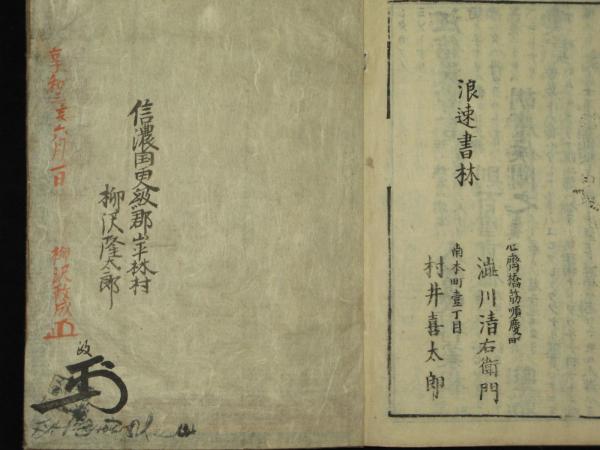 浪速書林
心齋橋筋順慶町
澁川清右衛門
南本町壹丁目
村井喜太郎
信濃国更級郡岩林村
柳沢隆太郎
享和三亥六月一日
柳沢政成
政